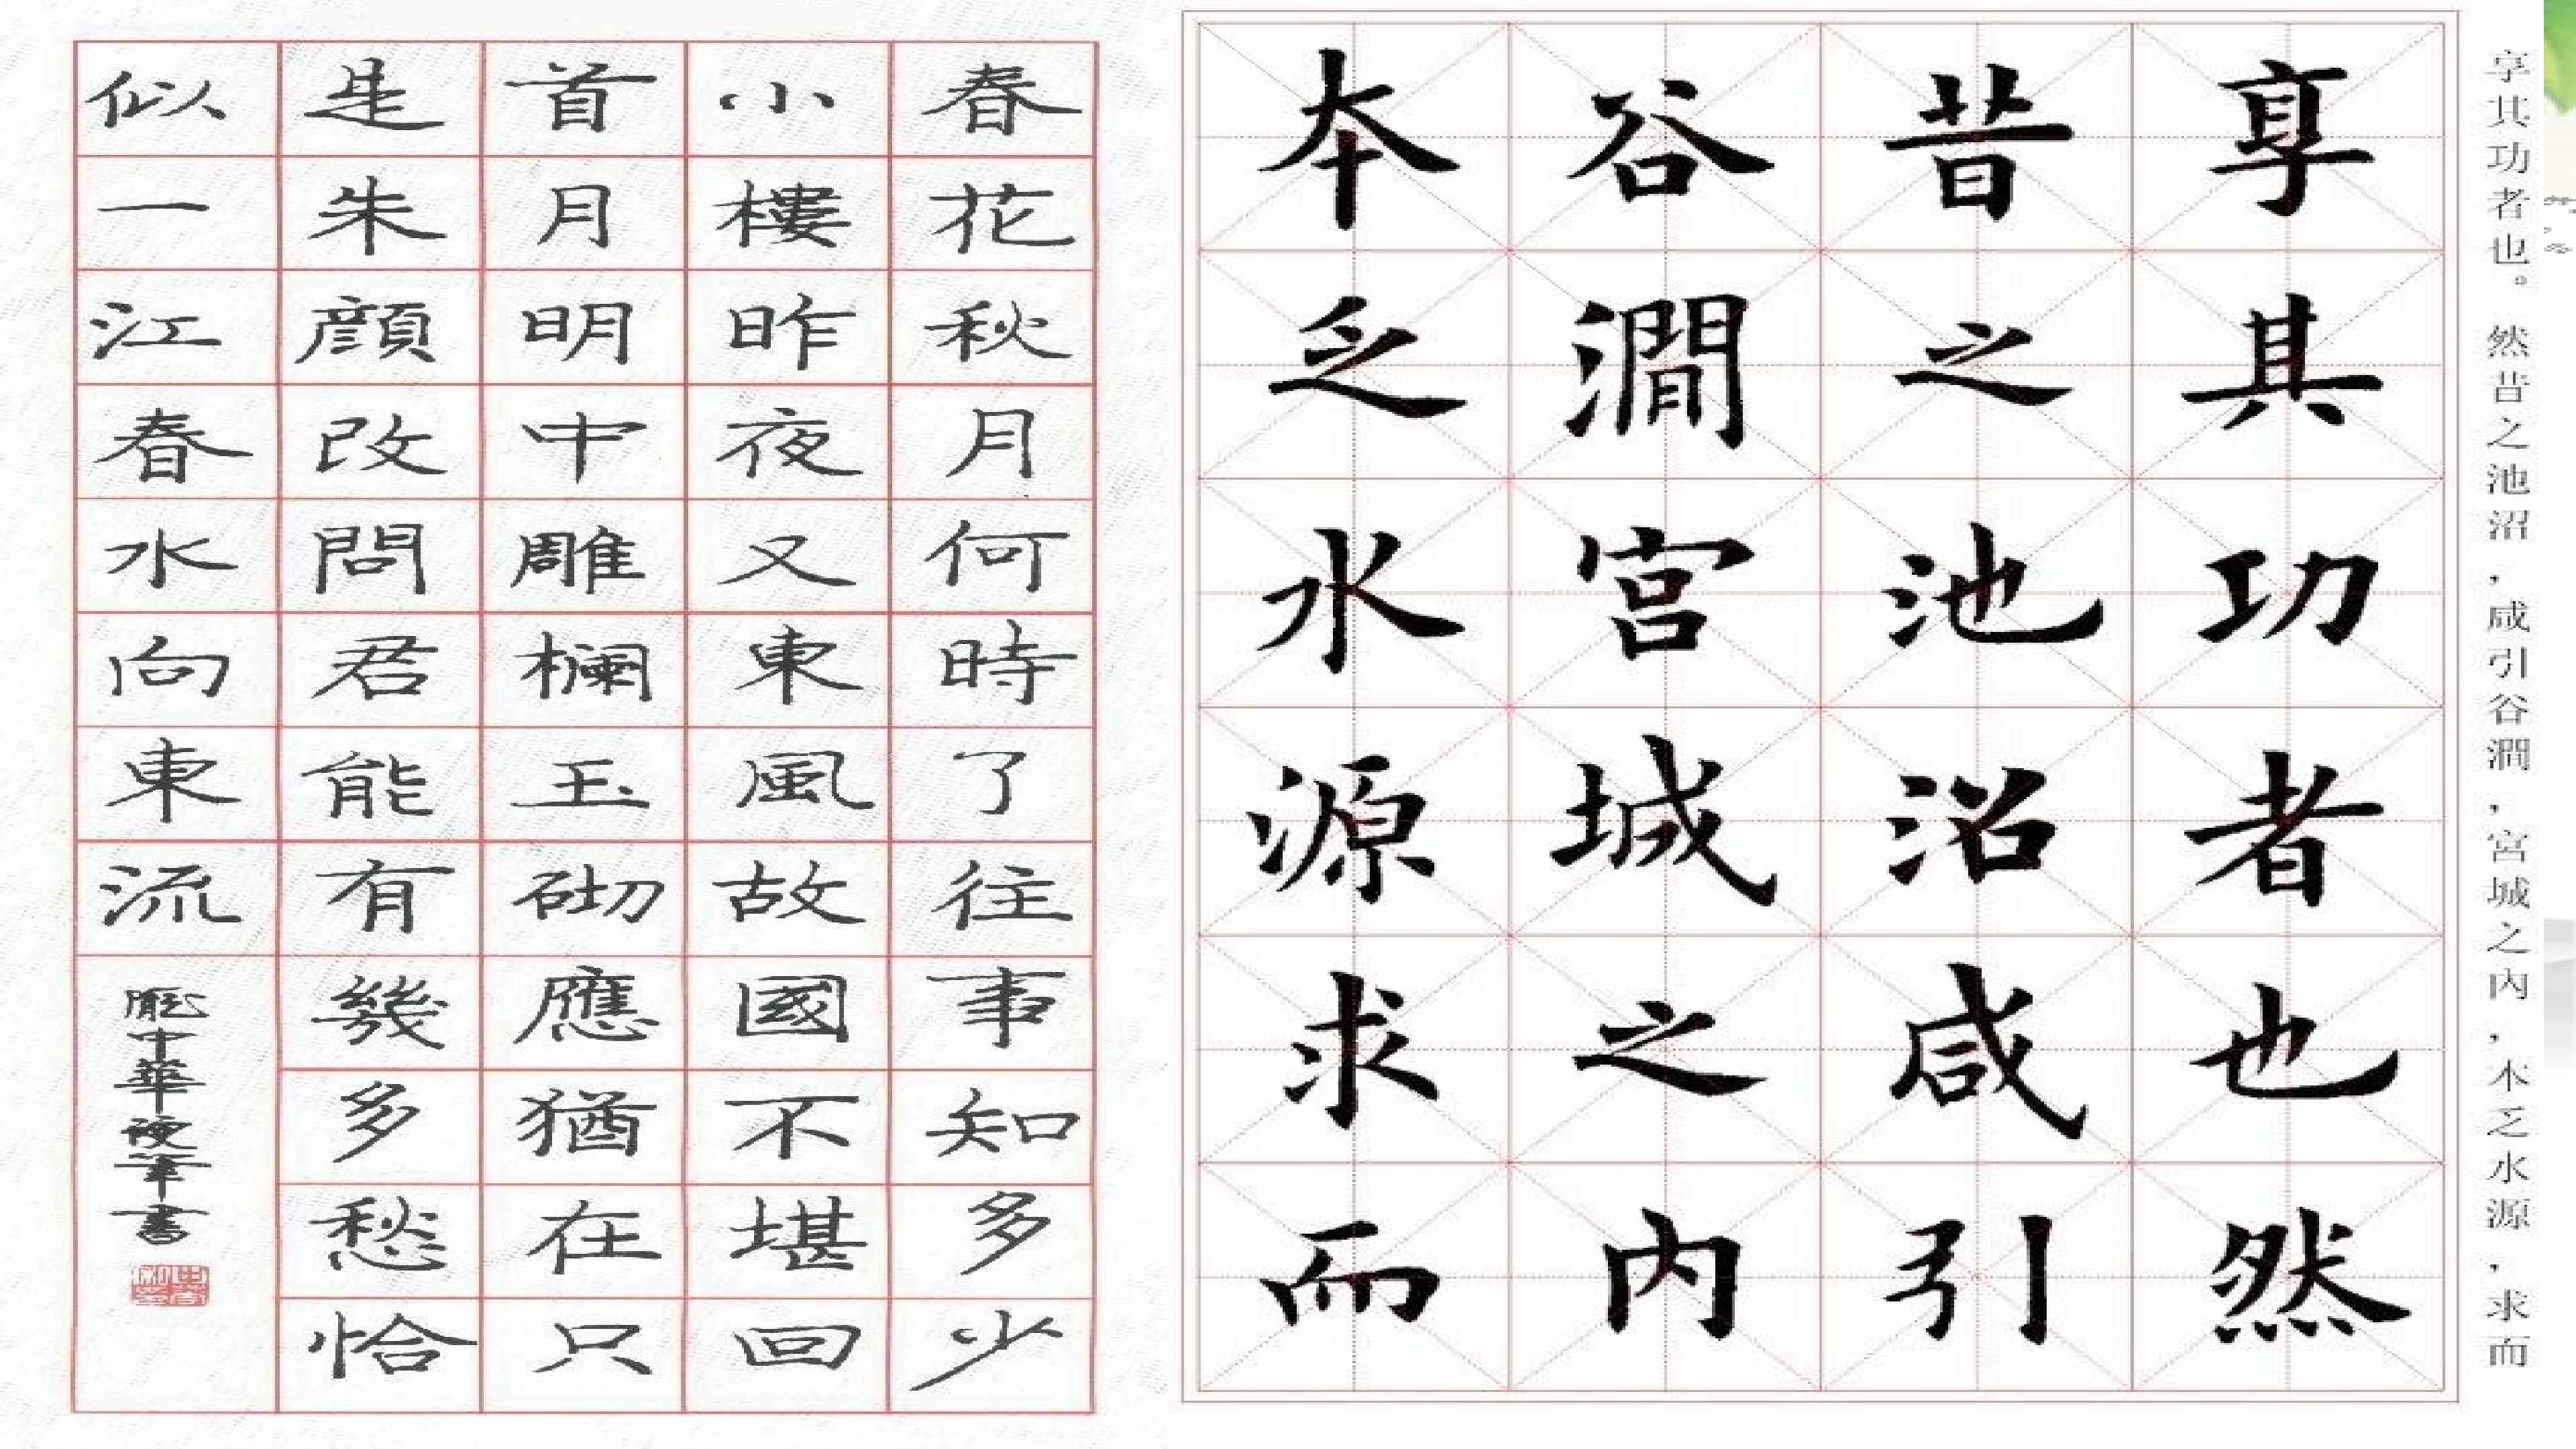 春花秋月何時了往事知多少
小樓昨夜又東風故國不堪回
首月明中雕欄玉砌應猶在只
是朱顔改問君能有幾多愁恰
似一江春水向東流
龐中華硬筆書
享其功者也。然昔之池沼，咸引谷澗，宮城之內，本乏水源，求而
享其功者也然
昔之池沼咸引
谷澗宮城之内
本乏水源求而